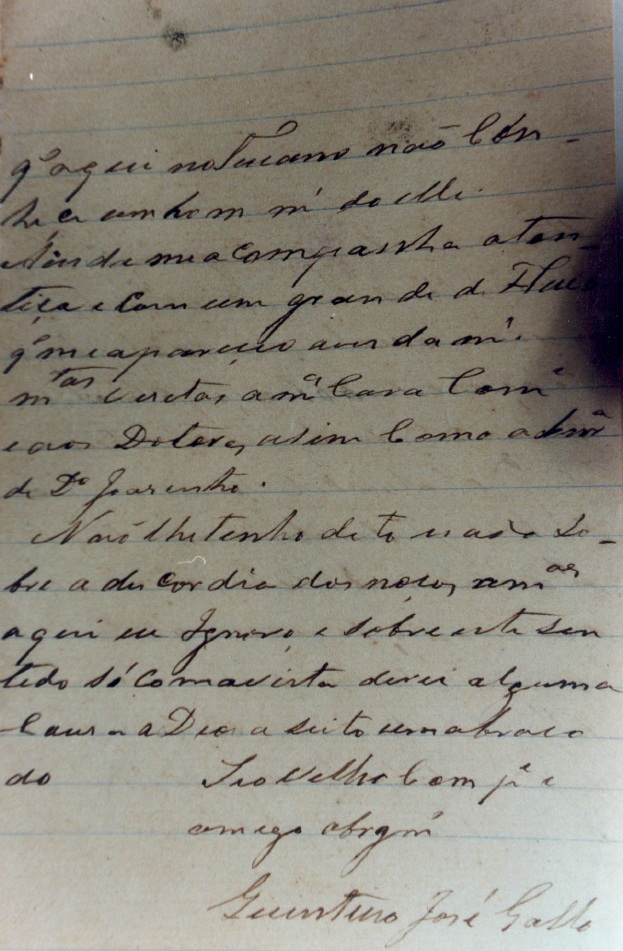 q^e aqui no Tucano não Con-
hece um hom m^to do elle.
Ainda me acompanha a ton-
tiça e com um grande d Fluco
q^e me apareceu
m^tas vezitas a m^a Cara Com^e
e aos Dotores, asim Como a
de D^o Joasinho.
Não lhe tenho dito nada So-
bre a discordia dos nosos am^os
aqui eu Ignoro, e sobre este sen
tido só com a vista direi alguma
Causa a Deos aseite um abraco
do Seo Velho Comp^e e
amigo obrg^m
José Gallo